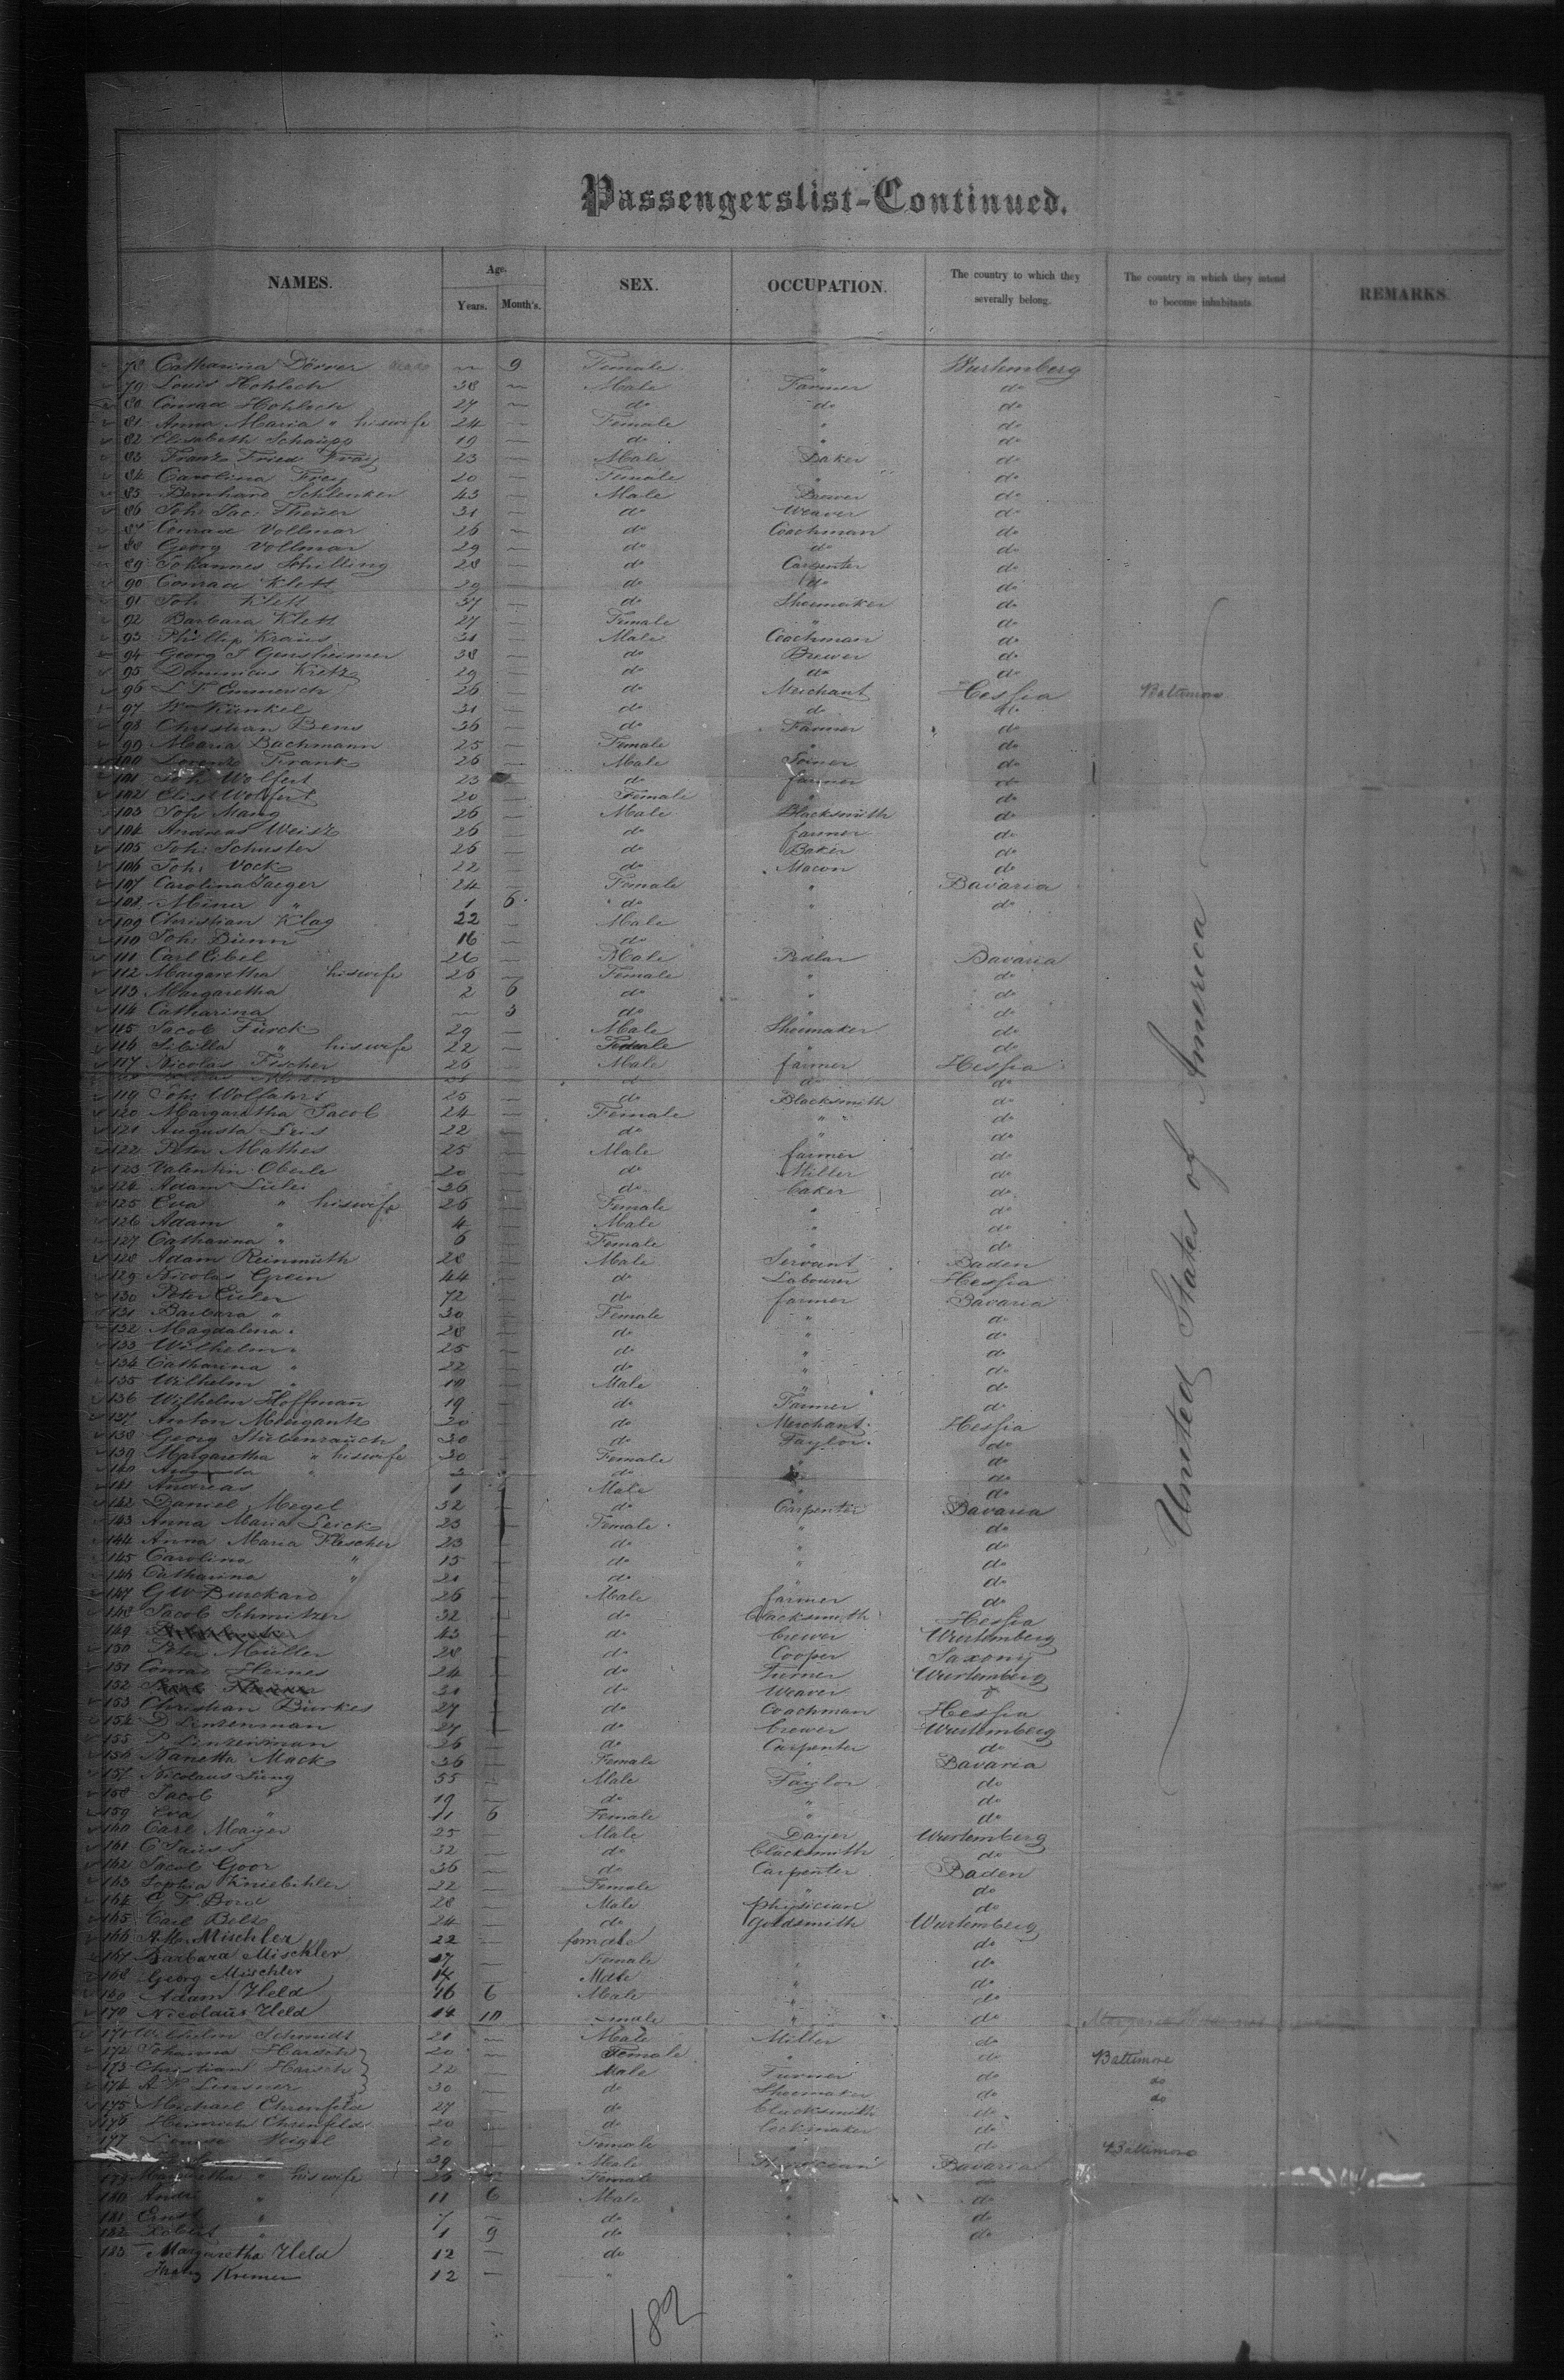 Passengerslist-Continued.
NAMES. Age. Years. Month's. SEX. OCCUPATION. The country to which they severally belong. The country in which they intend to become inhabitants. REMARKS.
78 Catharina Dörrer 9 Female " Wurtemberg
79 Louis Hohloch 38 Male Farmer do
80 Conrad Hohloch 27 do do do
81 Anna Maria " his wife 24 Female " do
82 Elisabeth Schaupp 19 do " do
83 Franz Fried Frey 23 Male Baker do
84 Carolina Frey 20 Female " do
85 Bernhard Schlenker 43 Male Brewer do
86 Joh: Jac: Theuer 31 do Weaver do
87 Conrad Vollmar 26 do Coachman do
88 Georg Vollmar 29 do do do
89 Johannes Schilling 28 do Carpenter do
90 Conrad Klett 29 do do do
91 Joh Klett 37 do Shoemaker do
92 Barbara Klett 27 Female " do
93 Phillip Kraus 31 Male Coachman do
94 Georg J Gensheimer 38 do Brewer do
95 Dominicus Kretz 29 do do do
96 L F Emmerich 26 do Merchant Hessia Baltimore
97 Wm Künkel 31 do do do
98 Christian Bens 36 do Farmer do
99 Maria Bachmann 25 Female " do
100 Lorenz Frank 26 Male Joiner do
101 Joh: Wolfert 23 do farmer do
102 Elis Wolfert 20 Female " do
103 Joh Mang 26 Male Blacksmith do
104 Andreas Weisz 26 do farmer do
105 Joh: Schuster 26 do Baker do
106 Joh: Vock 22 do Macon do
107 Carolina Jaeger 24 Female " Bavaria
108 Mina " 1 6 do " do
109 Christian Klag 22 Male
110 Joh: Bienn 16 do
111 Carl Eibel 26 Male Pedlar Bavaria
112 Margaretha his wife 26 Female " do
113 Margaretha 2 6 do " do
114 Catharina 3 do " do
115 Jacob Fürck 29 Male Shoemaker do
116 Sibilla " his wife 22 Female " do
117 Nicolas Fischer 26 Male farmer Hessia
do do
119 Joh: Wolfahrt 25 do Blacksmith do
120 Margaretha Jacob 24 Female " do
121 Augusta 22 do " do
122 Peter Mathes 25 Male farmer do
123 Valentin Oberle 20 do Miller do
124 Adam 36 do baker do
125 Eva " his wife 26 Female " do
126 Adam " 4 Male " do
127 Catharina " 6 Female " do
128 Adam Reinmuth 28 Male Servant Baden
129 Nicolas Grein 44 do Labourer Hessia
130 Peter Euler 72 do farmer Bavaria
131 Barbara " 30 Female " do
132 Magdalena " 28 do " do
133 Wilhelm " 25 do " do
134 Catharina " 22 do " do
135 Wilhelm " Male " do
136 Wilhelm Hoffmann 19 do Farmer do
137 Anton Mengantz 20 do Merchant Hessia
138 Georg Stubenrauch 30 do Taylor do
139 Margaretha " his wife 30 Female " do
140 " do do
141 Andreas 1 Male " do
142 Daniel Megel 32 do Carpenter Bavaria
143 Anna Maria Leick 23 Female " do
144 Anna Maria Flescher 23 do " do
145 Carolina " 15 do " do
146 Catharina " 21 do " do
147 G W Burckard 26 Male farmer do
148 Jacob Schmitzer 32 do blacksmith Hessia
149 43 do brewer Wurtemberg
150 Peter Müller 28 do Cooper Saxony
151 Conrad Heines 24 do Turner Wurtemberg
152 31 do Weaver
153 Christian Bürkes 27 do Coachman Hessia
154 D Linzenman 27 do brewer Wurtemberg
155 P Linzenman 26 do Carpenter do
156 Banetta Mack 36 Female Bavaria
157 Nicolaus Jung 55 Male Taylor do
158 Jacob " 19 do " do
159 Eva " 11 6 Female " do
160 Carl Mayer 25 Male Dayer Wurtemberg
161 C 32 do blacksmith do
162 Jacob Goor 36 do Carpenter Baden
163 Sophia Kniebihler 22 Female " do
164 C F Bord 28 Male physician do
165 Carl Bels 24 do goldsmith Wurtemberg
166 A.M. Mischler 22 female do
167 Barbara Mischler 17 Female do
168 Georg Mischler 14 Male " do
169 Adam Held 16 6 Male " do
170 Nicolaus Held 14 10 male " do
171 Wilhelm Schmidt 21 Male Miller do
172 Johanna Harsch 20 Female " do Baltimore
173 Christian Harsch 22 Male Turner do do
174 A W Linsner 30 do Shoemaker do do
175 Michael Ehrenfeld 27 do blacksmith do
176 Heinrich Ehrenfeld 20 do lockmaker do
177 Louise Weigel 20 Female " do Baltimore
39 Male Bavaria
179 Margaretha " his wife 26 Female do
180 Andr " 11 6 Male " do
181 Ernst " 7 do do
182 Robert " 1 9 do " do
183 Margaretha Held 12 do
Kremer 12 " "
United States of America
182